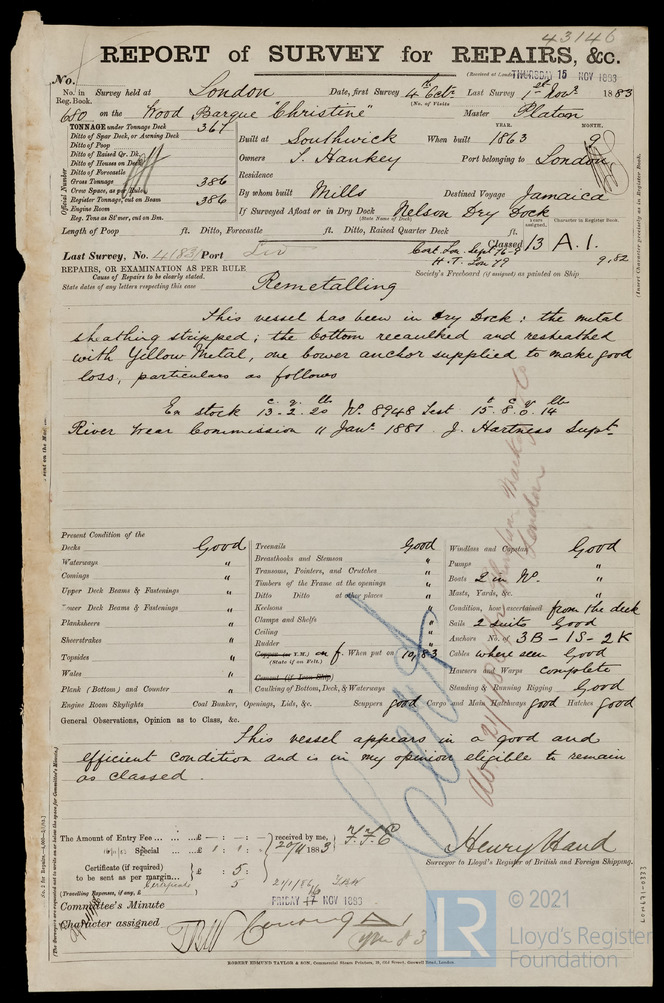 43146
REPORT of SURVEY for REPAIRS, &c.
(Received at London THURSDAY 15 NOV 1883
No.
No. in Reg. Book. Survey held at London Date, first Survey 4th Octr. Last Survey 1st Novr. 1883
(No. of Visits
680 on the Wood Barque "Christine" Master Platon
TONNAGE under Tonnage Deck 367
Ditto of Spar Deck, or Awning Deck
Ditto of Poop
Ditto of Raised Qr. Dk.
Ditto of Houses on Deck
Ditto of Forecastle
Gross Tonnage 386
Crew Space, as per Rules
Register Tonnage, cut on Beam 386
Engine Room
Reg. Tons as St'mer, cut on Bm.
Official Number
YEAR. MONTH.
Built at Southwick When built 1863 9
Owners S. Hankey Port belonging to London
Residence
By whom built Mills Destined Voyage Jamaica
If Surveyed Afloat or in Dry Dock Nelson Dry Dock
(State Name of Dock)
Length of Poop ft. Ditto, Forecastle ft. Ditto, Raised Quarter Deck ft.
Years assigned. Character in Register Book.
Last Survey, No. 4183 Port Liv
Classed 13 A.1.
9,82
H.T. Lon 79
REPAIRS, OR EXAMINATION AS PER RULE
Society's Freeboard (if assigned) as painted on Ship
Cause of Repairs to be clearly stated.
State dates of any letters respecting this case
Remetalling
This vessel has been in Dry Dock: the metal
sheathing stripped; the bottom recaulked and resheathed
with Yellow Metal, one bower anchor supplied to make good
loss, particulars as follows
c. q. lb t c q lb
Ex stock 13-2-20 No. 8948 Test 15.8.0.14
River Wear Commission 11 Jany. 1881. J. Hartness Supt.
Present Condition of the
Decks Good
Waterways "
Comings "
Upper Deck Beams & Fastenings "
Lower Deck Beams & Fastenings "
Planksheers "
Sheerstrakes "
Topsides "
Wales "
Plank (Bottom) and Counter "
Engine Room Skylights
Treenails Good
Breasthooks and Stemson "
Transoms, Pointers, and Crutches "
Timbers of the Frame at the openings "
Ditto Ditto at other places "
Keelsons "
Clamps and Shelfs "
Ceiling "
Rudder "
Copper (or Y.M.) on f. When put on 10,83
(State if on Felt.)
Cement (if Iron Ship)
Caulking of Bottom, Deck, & Waterways
Coal Bunker, Openings, Lids, &c. Scuppers good Cargo and Main Hatchways good Hatches Good
Windlass and Capstan Good
Pumps "
Boats 2 in No. "
Masts, Yards, &c. "
Condition, how ascertained from the deck
Sails 2 suits Good
Anchors No. of 3B-1S-2K
Cables where seen Good
Hawsers and Warps complete
Standing & Running Rigging Good
General Observations, Opinion as to Class, &c.
This vessel appears in a good and
efficient condition and is in my opinion eligible to remain
as classed.
The Amount of Entry Fee ... £ - : - : -
Special ... £ 1 : 1 : -
received by me,
20/11 1883
Certificate (if required) to be sent as per margin... £ : 5 :
(Travelling Expenses, if any, £ )
Certificate 5
Henry Hand
Surveyor to Lloyd's Register of British and Foreign Shipping.
Committee's Minute FRIDAY 16 NOV 1883
Character assigned
ROBERT EDMUND TAYLOR & SON, Commercial Steam Printers, 19, Old Street, Goswell Road, London.
(Insert Character precisely as in Register Book.
© 2021
LR
Lloyd's Register
Foundation